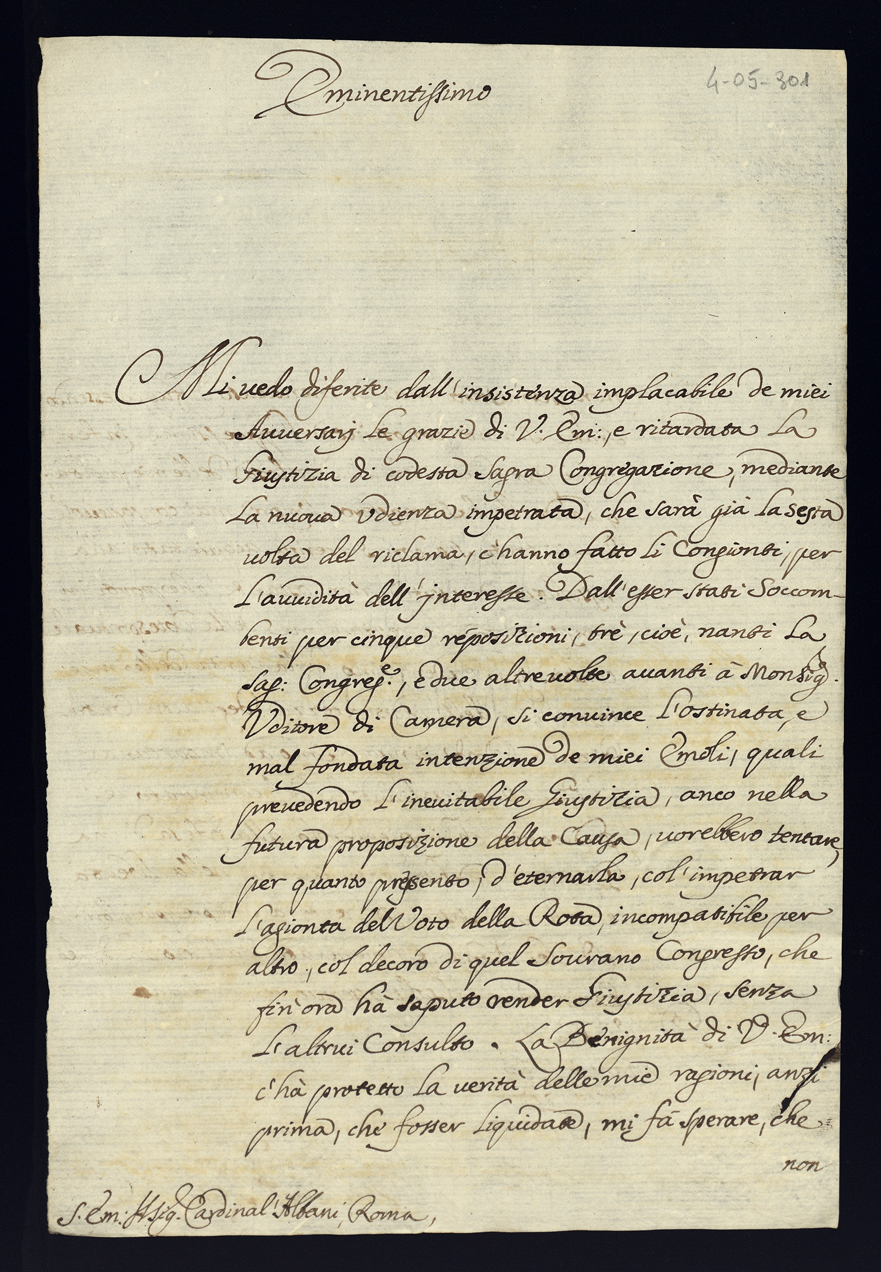 Eminentissimo
4-05-301
Mi vedo diferite dall'insistenza implacabile de miei
Avversarij le grazie di V. Em:, e ritardata la
Giustizia di codesta Sagra Congregazione, mediante
la nuova Udienza impetrata, che sarà già la sesta
volta del riclama, c'hanno fatto li Congionti, per
l'avvidità dell'jnteresse. Dall'esser stati Soccom-
benti per cinque réposizioni, trè, cioè, nanti la
Sag: Congreg.e, e due altre volte avanti à Monsig.r
Vditore di Camera, si convince l'ostinata, e
mal fondata intenzione de miei Emoli, quali
prevedendo l'inevitabile Giustizia, anco nella
futura proposizione della Causa, vorebbero tentare,
per quanto presento, d'eternarla, col'impetrar
l'agionta del Voto della Rota, incompatibile per
altro, col decoro di quel Sourano Congresso, che
fin'ora hà saputo render Giustizia, senza
l'altrui Consulto. La Benignità di V. Em:
c'hà protetto la verità delle mie ragioni, anzi
prima, che fosser liquidate, mi fà sperare, che
non
S. Em: Sig.r Cardinal'Albani, Roma,